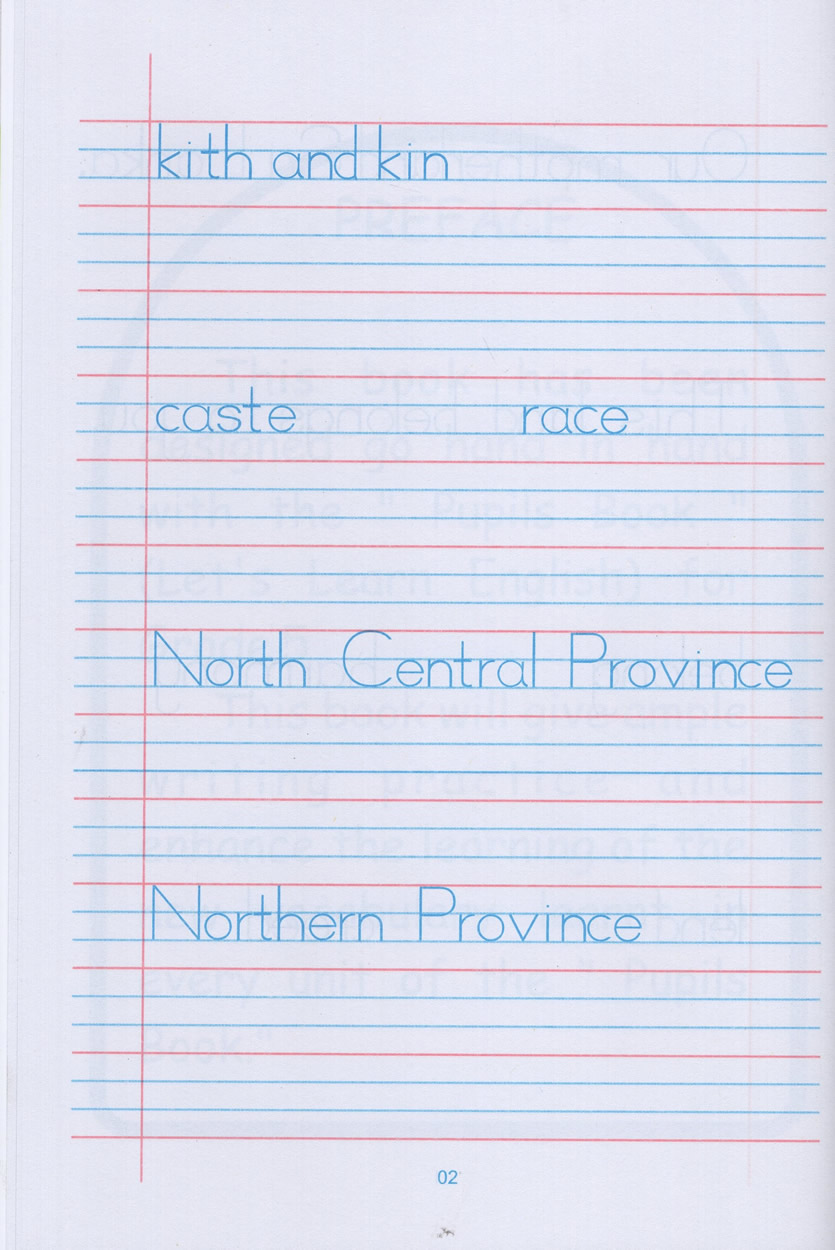 kith and kin
caste race
North Central Province
Northern Province
02